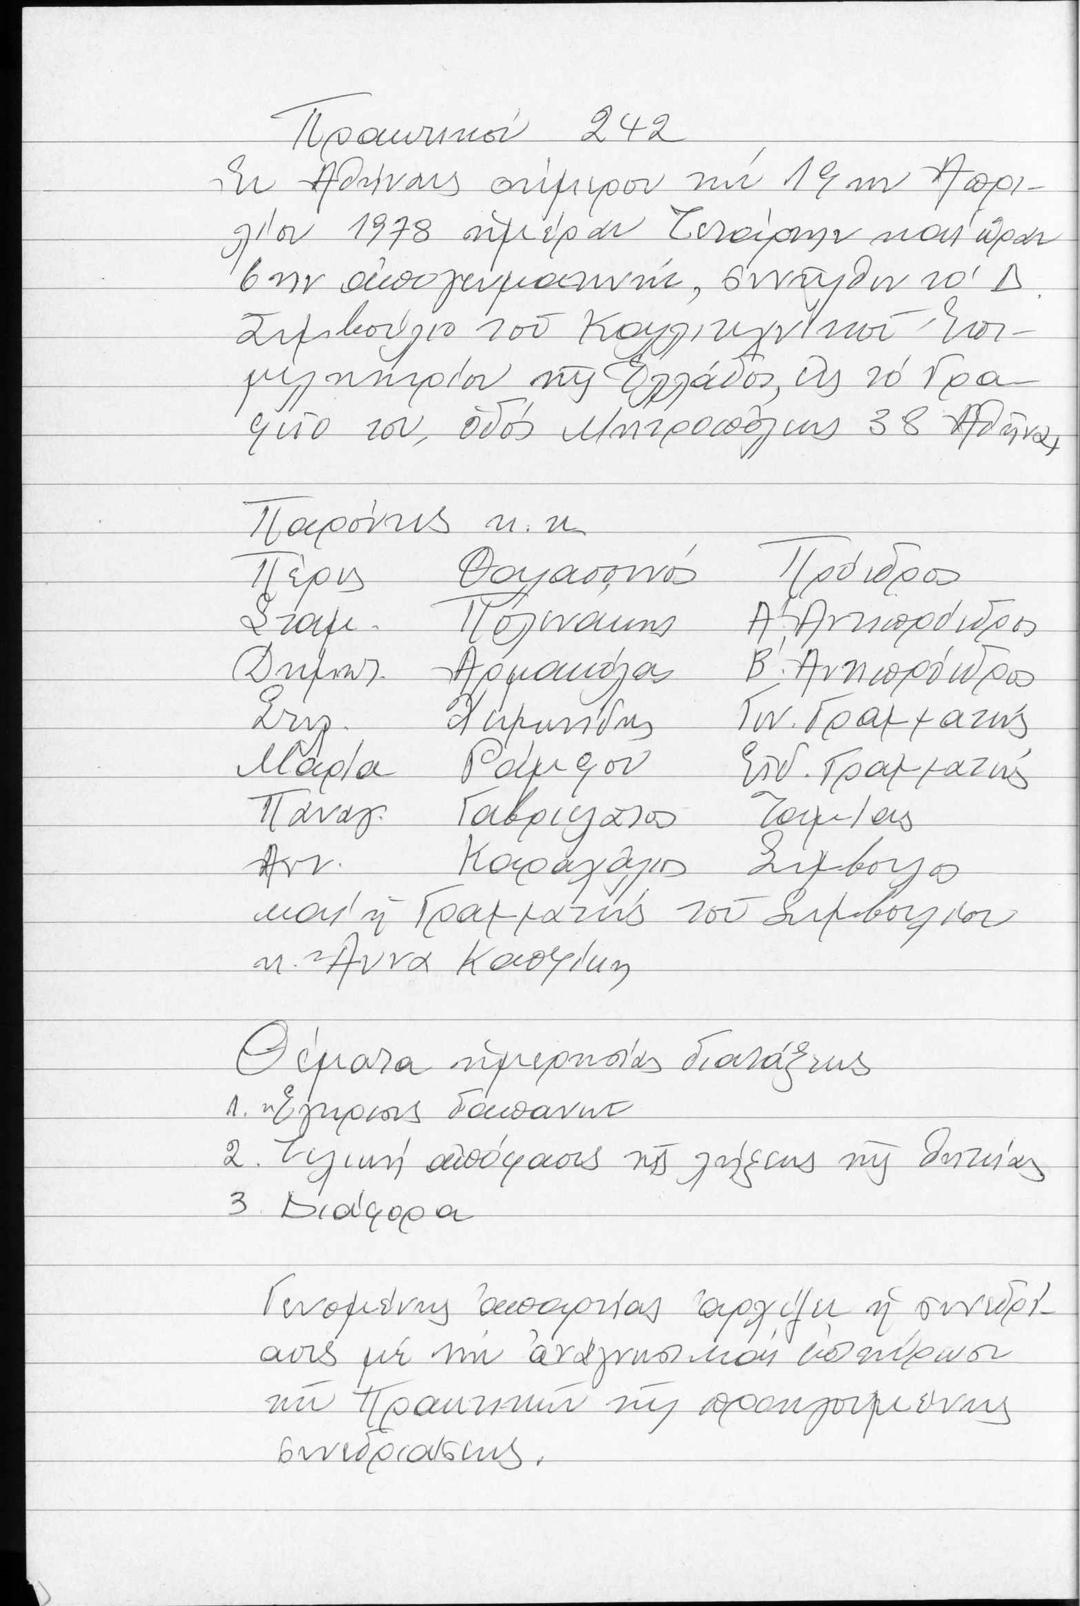 Πρακτικόν 242
Ἐν Ἀθήναις σήμερον τήν 19ην Ἀπρι-
λίου 1978 ἡμέραν Τετάρτην καί ὥραν
6ην ἀπογευματινήν, συνῆλθεν τό Δ.
Συμβούλιο τοῦ Καλλιτεχνικοῦ Ἐπι-
μελητηρίου τῆς Ἑλλάδος, εἰς τό Γρα-
φεῖο του, ὁδός Μητροπόλεως 38 Ἀθῆναι
Παρόντες κ.κ.
Πέρις Θαλασσινός Πρόεδρος
Σταμ. Πολενάκης Α΄. Ἀντιπρόεδρος
Δημοσ. Ἀρμακόλας Β΄. Ἀντιπρόεδρος
Στυλ. Χειμωνίδης Γεν. Γραμματεύς
Μαρία Ράμφου Εἰδ. Γραμματεύς
Παναγ. Γαβριελάτος Ταμίας
Ἀντ. Καραχάλιος Σύμβουλος
καί ἡ Γραμματεύς τοῦ Συμβουλίου
κ. Ἄννα Καψίκη
Θέματα ἡμερησίας διατάξεως
1. Ἔγκρισις δαπανῶν
2. Τελική ἀπόφασις τῆς λήξεως τῆς θητείας
3. Διάφορα
Γενομένης ἀπαρτίας ἀρχίζει ἡ συνεδρί-
ασις μέ τήν ἀνάγνωσι καί ἐπικύρωσι
τῶν Πρακτικῶν τῆς προηγουμένης
συνεδριάσεως.